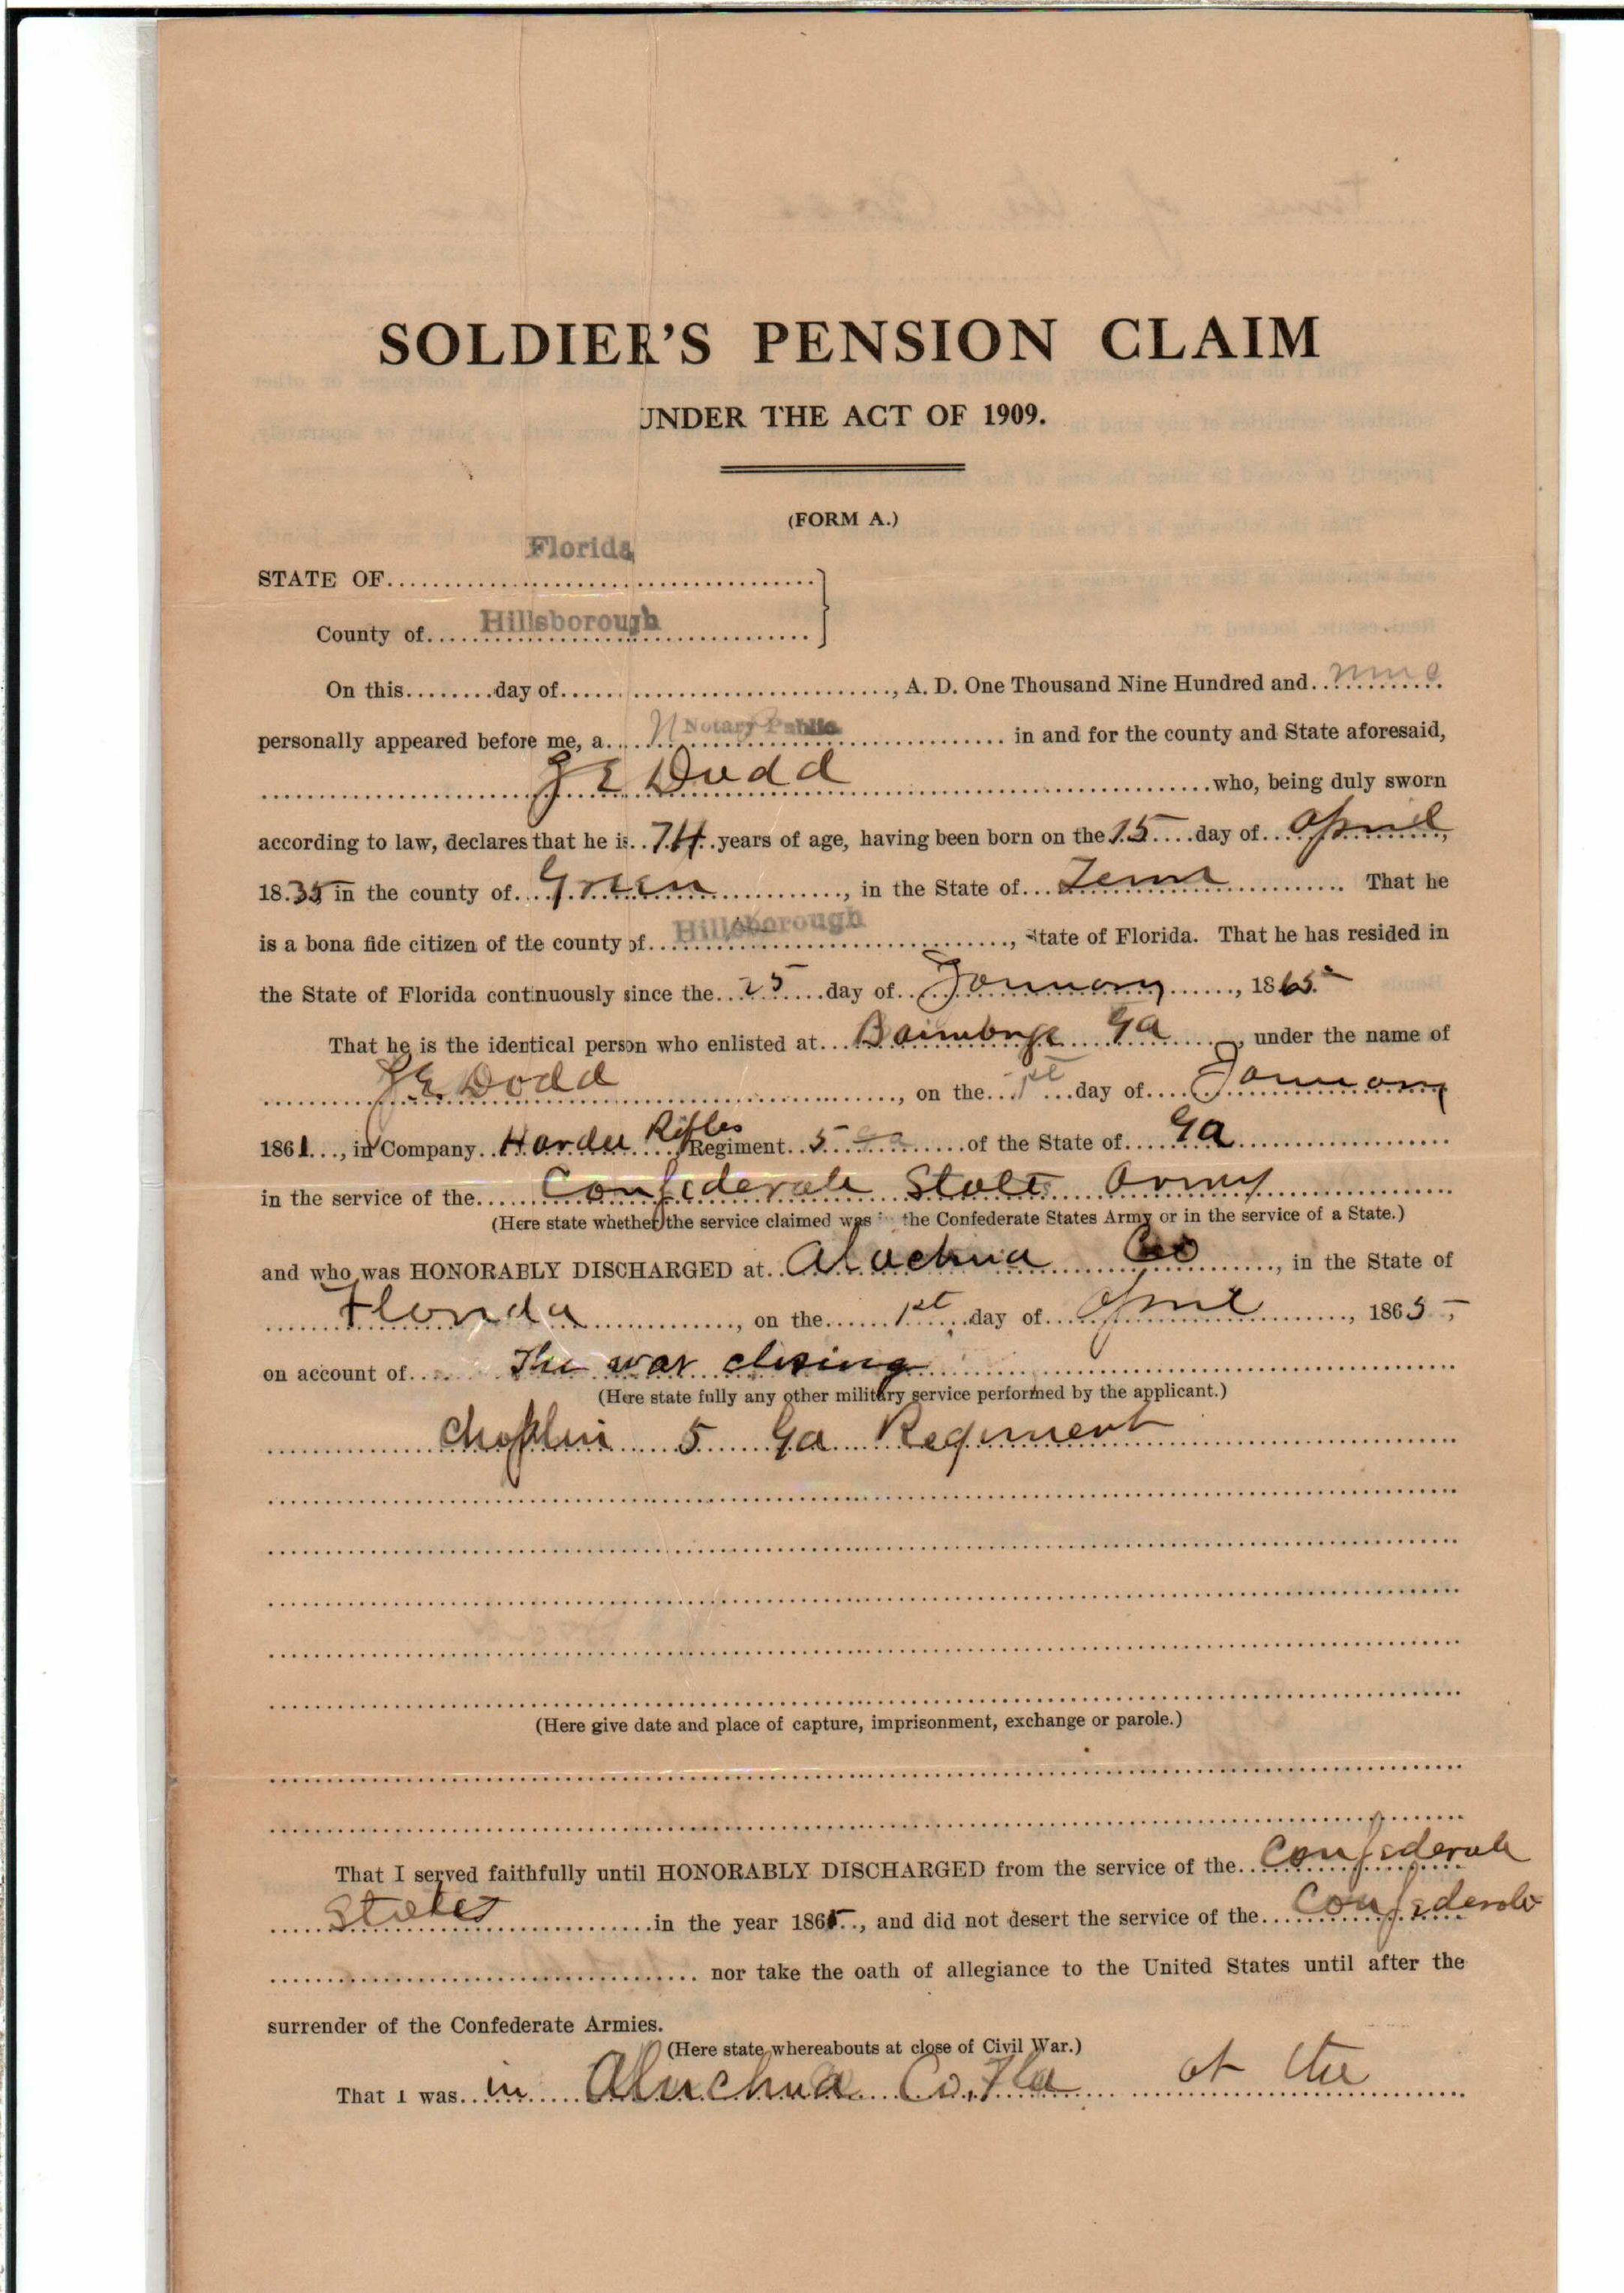 SOLDIER'S PENSION CLAIM
UNDER THE ACT OF 1909.
(FORM A.)
Florida
STATE OF
County of Hillsborough
On this day of , A. D. One Thousand Nine Hundred and nine
personally appeared before me, a Notary Public in and for the county and State aforesaid,
J E Dodd who, being duly sworn
according to law, declares that he is 74 years of age, having been born on the 15 day of April,
1835 in the county of Green, in the State of Tenn. That he
is a bona fide citizen of the county of Hillsborough, State of Florida. That he has resided in
the State of Florida continuously since the 25 day of January, 1865
That he is the identical person who enlisted at Bainbrge Ga, under the name of
J E Dodd, on the 1st day of January
1861, in Company Hardee Rifles Regiment 5 Ga of the State of Ga
in the service of the Confederate State Army
(Here state whether the service claimed was in the Confederate States Army or in the service of a State.)
and who was HONORABLY DISCHARGED at Alachua Co, in the State of
Florida, on the 1st day of April, 1865,
on account of The war closing
(Here state fully any other military service performed by the applicant.)
Choplin 5 Ga Regiment
(Here give date and place of capture, imprisonment, exchange or parole.)
That I served faithfully until HONORABLY DISCHARGED from the service of the Confederate
States in the year 1865, and did not desert the service of the Confederate
nor take the oath of allegiance to the United States until after the
surrender of the Confederate Armies.
(Here state whereabouts at close of Civil War.)
That I was in Aluchua Co, Fla at the